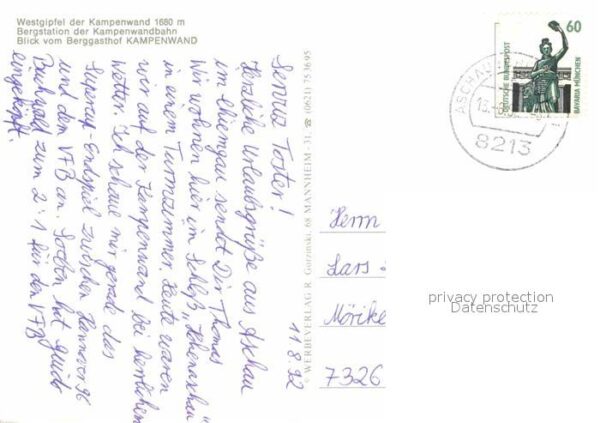 Westgipfel der Kampenwand 1680 m
Bergstation der Kampenwandbahn
Blick vom Berggasthof KAMPENWAND
11 8 92
Servus Toster!
Herzliche Urlaubsgrüße aus Aschau
im Chiemgau sendet Dir Thomas
Wir wohnen hier im Schloß „Hohenaschau“
in einem Turmzimmer. Heute waren
wir auf der Kampenwand bei herrlichem
Wetter. Ich schaue mir gerade das
Supercup-Endspiel zwischen Hannover 96
und dem VFB an. Soeben hat Guido
Buchwald zum 2:1 für den VFB
eingeköpft.
© WERBEVERLAG R. Gorzinski, 68 MANNHEIM - 31, ☎ (0621) 75 36 95
Herrn
Lars
Mörike
7326
60
DEUTSCHE BUNDESPOST
BAVARIA MÜNCHEN
ASCHAU
13.
8213
privacy protection
Datenschutz